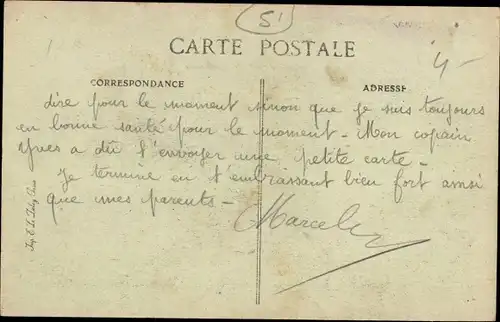 51
CARTE POSTALE
4-
CORRESPONDANCE
ADRESSE
dire pour le moment sinon que je suis toujours
en bonne santé pour le moment - Mon copain
Yves a du t'envoyer une petite carte -
Je termine en t'embrassant bien fort ainsi
que mes parents -
Marcel
Imp. E. Le Deley, Paris